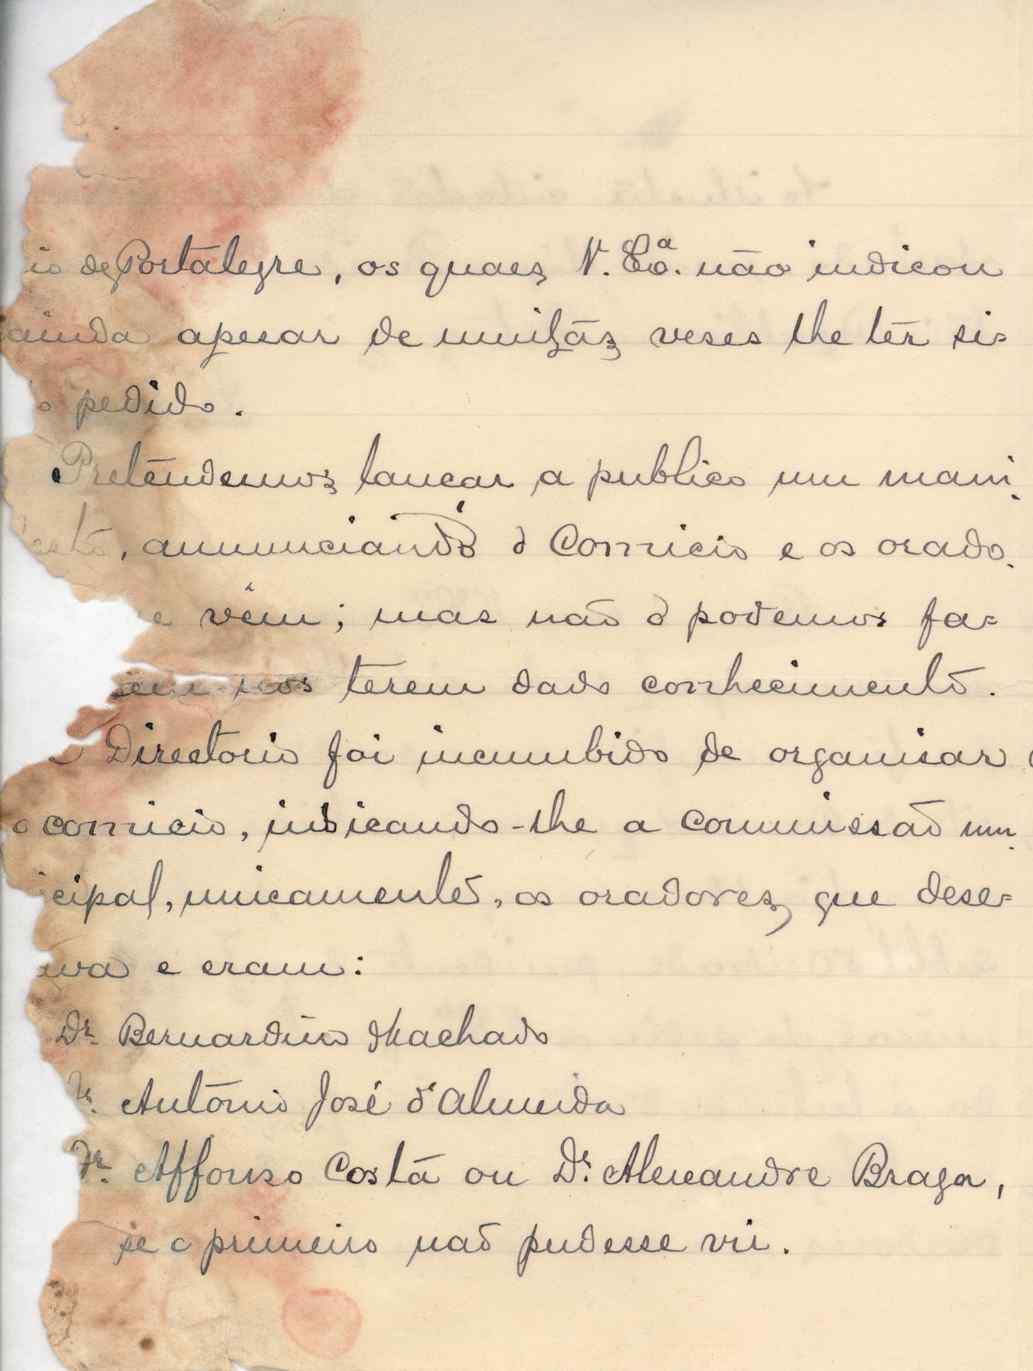 io de Portalegre, os quaes V. Exª. não indicou
ainda apesar de muitas veses lhe têr si-
o pedido.
Pretendemos lançar a publico um mani-
festo, annunciando o Comicio e os orado-
e vêm; mas não o podemos fa-
sem nos terem dado conhecimento.
O Directorio foi incumbido de organisar
o comicio, indicando-lhe a Commissão mu-
icipal, unicamente, os oradores que dese-
java e eram:
Dr. Bernardino Machado
Dr. António José d'Almeida
Dr. Affonso Costa ou Dr. Alexandre Braga,
se o primeiro não pudesse vir.